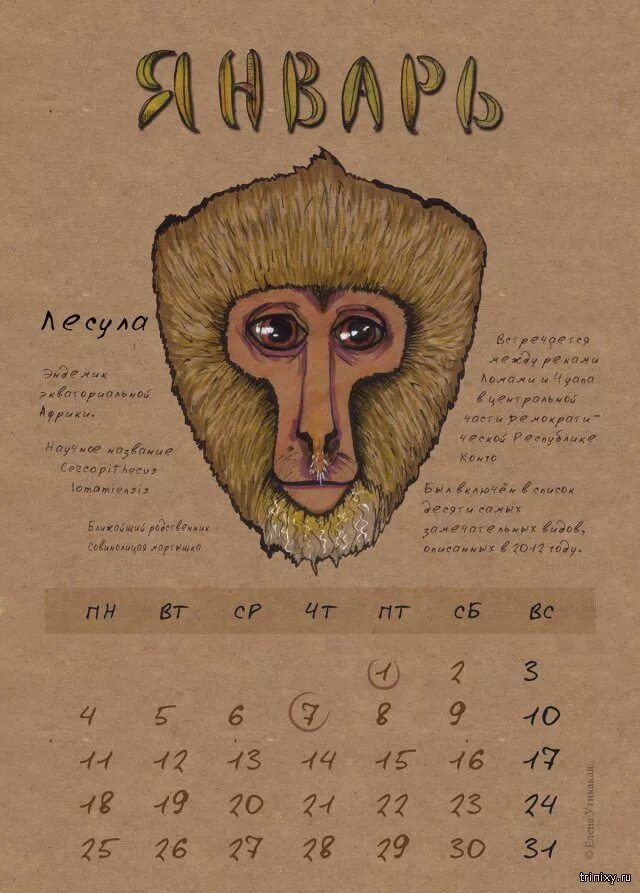 ЯНВАРЬ
Лесула
Эндемик
экваториальной
Африки.
Научное название
Cercopithecus
lomamiensis
Ближайший родственник
совинолицая мартышка
Встречается
между реками
Ломами и Чуапа
в центральной
части демократи-
ческой Республике
Конго
Был включён в список
десяти самых
замечательных видов,
описанных в 2012 году.
ПН ВТ СР ЧТ ПТ СБ ВС
1 2 3
4 5 6 7 8 9 10
11 12 13 14 15 16 17
18 19 20 21 22 23 24
25 26 27 28 29 30 31
© Елена Утикакая
trinixy.ru